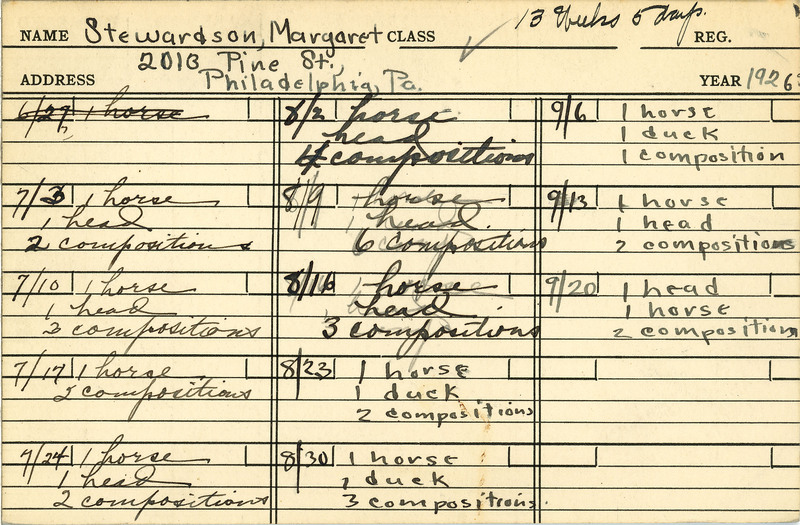 13 Weeks 5 days.
NAME Stewardson, Margaret CLASS ✓ REG.
2013 Pine St.,
ADDRESS Philadelphia, Pa. YEAR 1926
6/27 1 horse
7/3 1 horse
1 head
2 compositions
7/10 1 horse
1 head
2 compositions
7/17 1 horse
2 compositions
7/24 1 horse
1 head
2 compositions
8/2 horse
head
4 compositions
8/9 horse
1 head
6 compositions
8/16 horse
head
3 compositions
8/23 1 horse
1 duck
2 compositions
8/30 1 horse
1 duck
3 compositions
9/6 1 horse
1 duck
1 composition
9/13 1 horse
1 head
2 compositions
9/20 1 head
1 horse
2 compositions